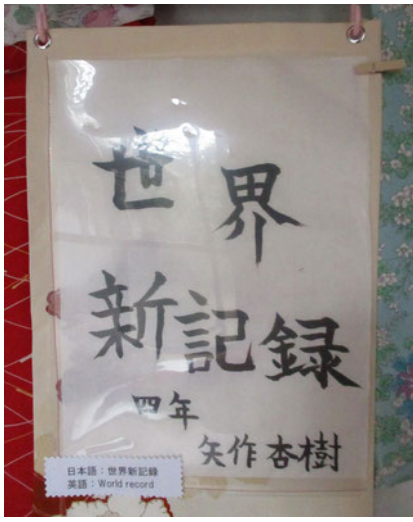 世界
新記録
四年
矢作杏樹
日本語：世界新記録
英語：World record